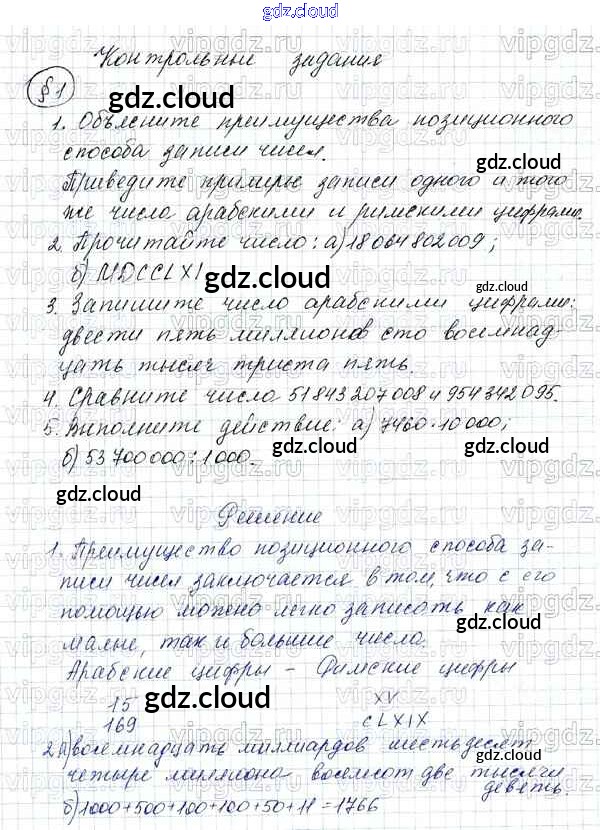 gdz.cloud
Контрольные задания
§1
1. Объясните преимущества позиционного
способа записи чисел.
Приведите примеры записи одного и того
же числа арабскими и римскими цифрами.
2. Прочитайте число: а) 18064802009;
б) MDCCLXI
3. Запишите число арабскими цифрами:
двести пять миллионов сто восемнад-
цать тысяч триста пять.
4. Сравните число 51843207008 и 954342095.
5. Выполните действие: а) 7460·10000;
б) 53700000:1000.
Решение
1. Преимущество позиционного способа за-
писи чисел заключается в том, что с его
помощью можно легко записать как
малые, так и большие числа.
Арабские цифры – Римские цифры
15 XV
169 CLXIX
2 а) восемнадцать миллиардов шестьдесят
четыре миллиона восемсот две тысячи
девять.
б) 1000+500+100+100+50+11=1766
gdz.cloud
gdz.cloud
gdz.cloud
gdz.cloud
gdz.cloud
gdz.cloud
gdz.cloud
gdz.cloud
gdz.cloud
gdz.cloud
gdz.cloud